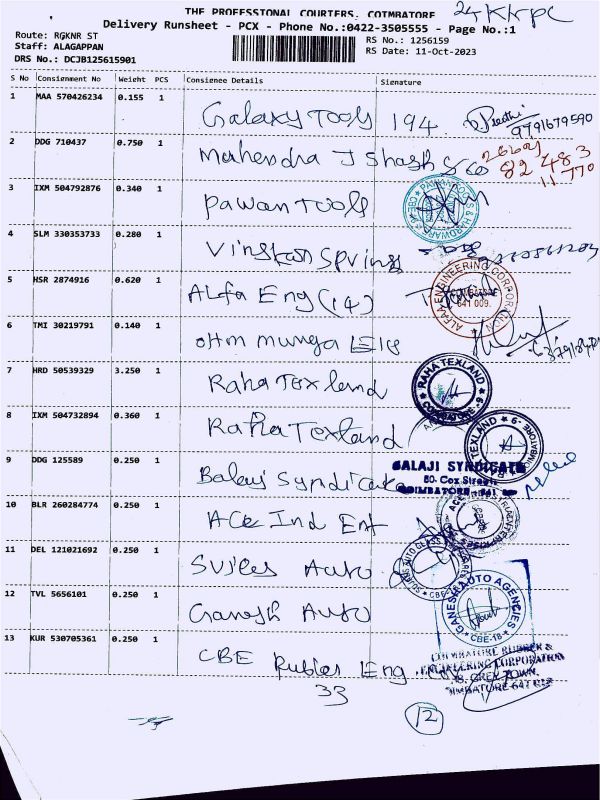 THE PROFESSIONAL COURIERS, COIMBATORE
Delivery Runsheet - PCX - Phone No.:0422-3505555 - Page No.:1
Route: RGKNR ST
RS No.: 1256159
Staff: ALAGAPPAN
RS Date: 11-Oct-2023
DRS No.: DCJB125615901
S No Consignment No Weight PCS Consignee Details Signature
1 MAA 570426234 0.155 1 Galaxy Tools 194
9791679590
2 DDG 710437 0.750 1 Mahendra J Shash & Co
82 483
11.770
3 IXM 504792876 0.340 1 Pawan Tools
4 SLM 330353733 0.280 1
5 HSR 2874916 0.620 1 Alfa Eng (14)
ALFAA ENGINEERING CORPORATION
641 009.
6 TMI 30219791 0.140 1
7 HRD 50539329 3.250 1 Raha Texland
RAHA TEXLAND
COIMBATORE-9
8 IXM 504732894 0.360 1 Raha Texland
9 DDG 125589 0.250 1 Balaji Syndicate
BALAJI SYNDICATE
80, Cox Street
COIMBATORE
10 BLR 260284774 0.250 1 Ace Ind Ent
11 DEL 121021692 0.250 1 Sujies Auto
12 TVL 5656101 0.250 1 Ganesh Auto
GANESH AUTO AGENCIES
CBE-18
13 KUR 530705361 0.250 1 CBE Rubber Eng
COIMBATORE RUBBER &
ENGINEERING CORPORATION
33
12